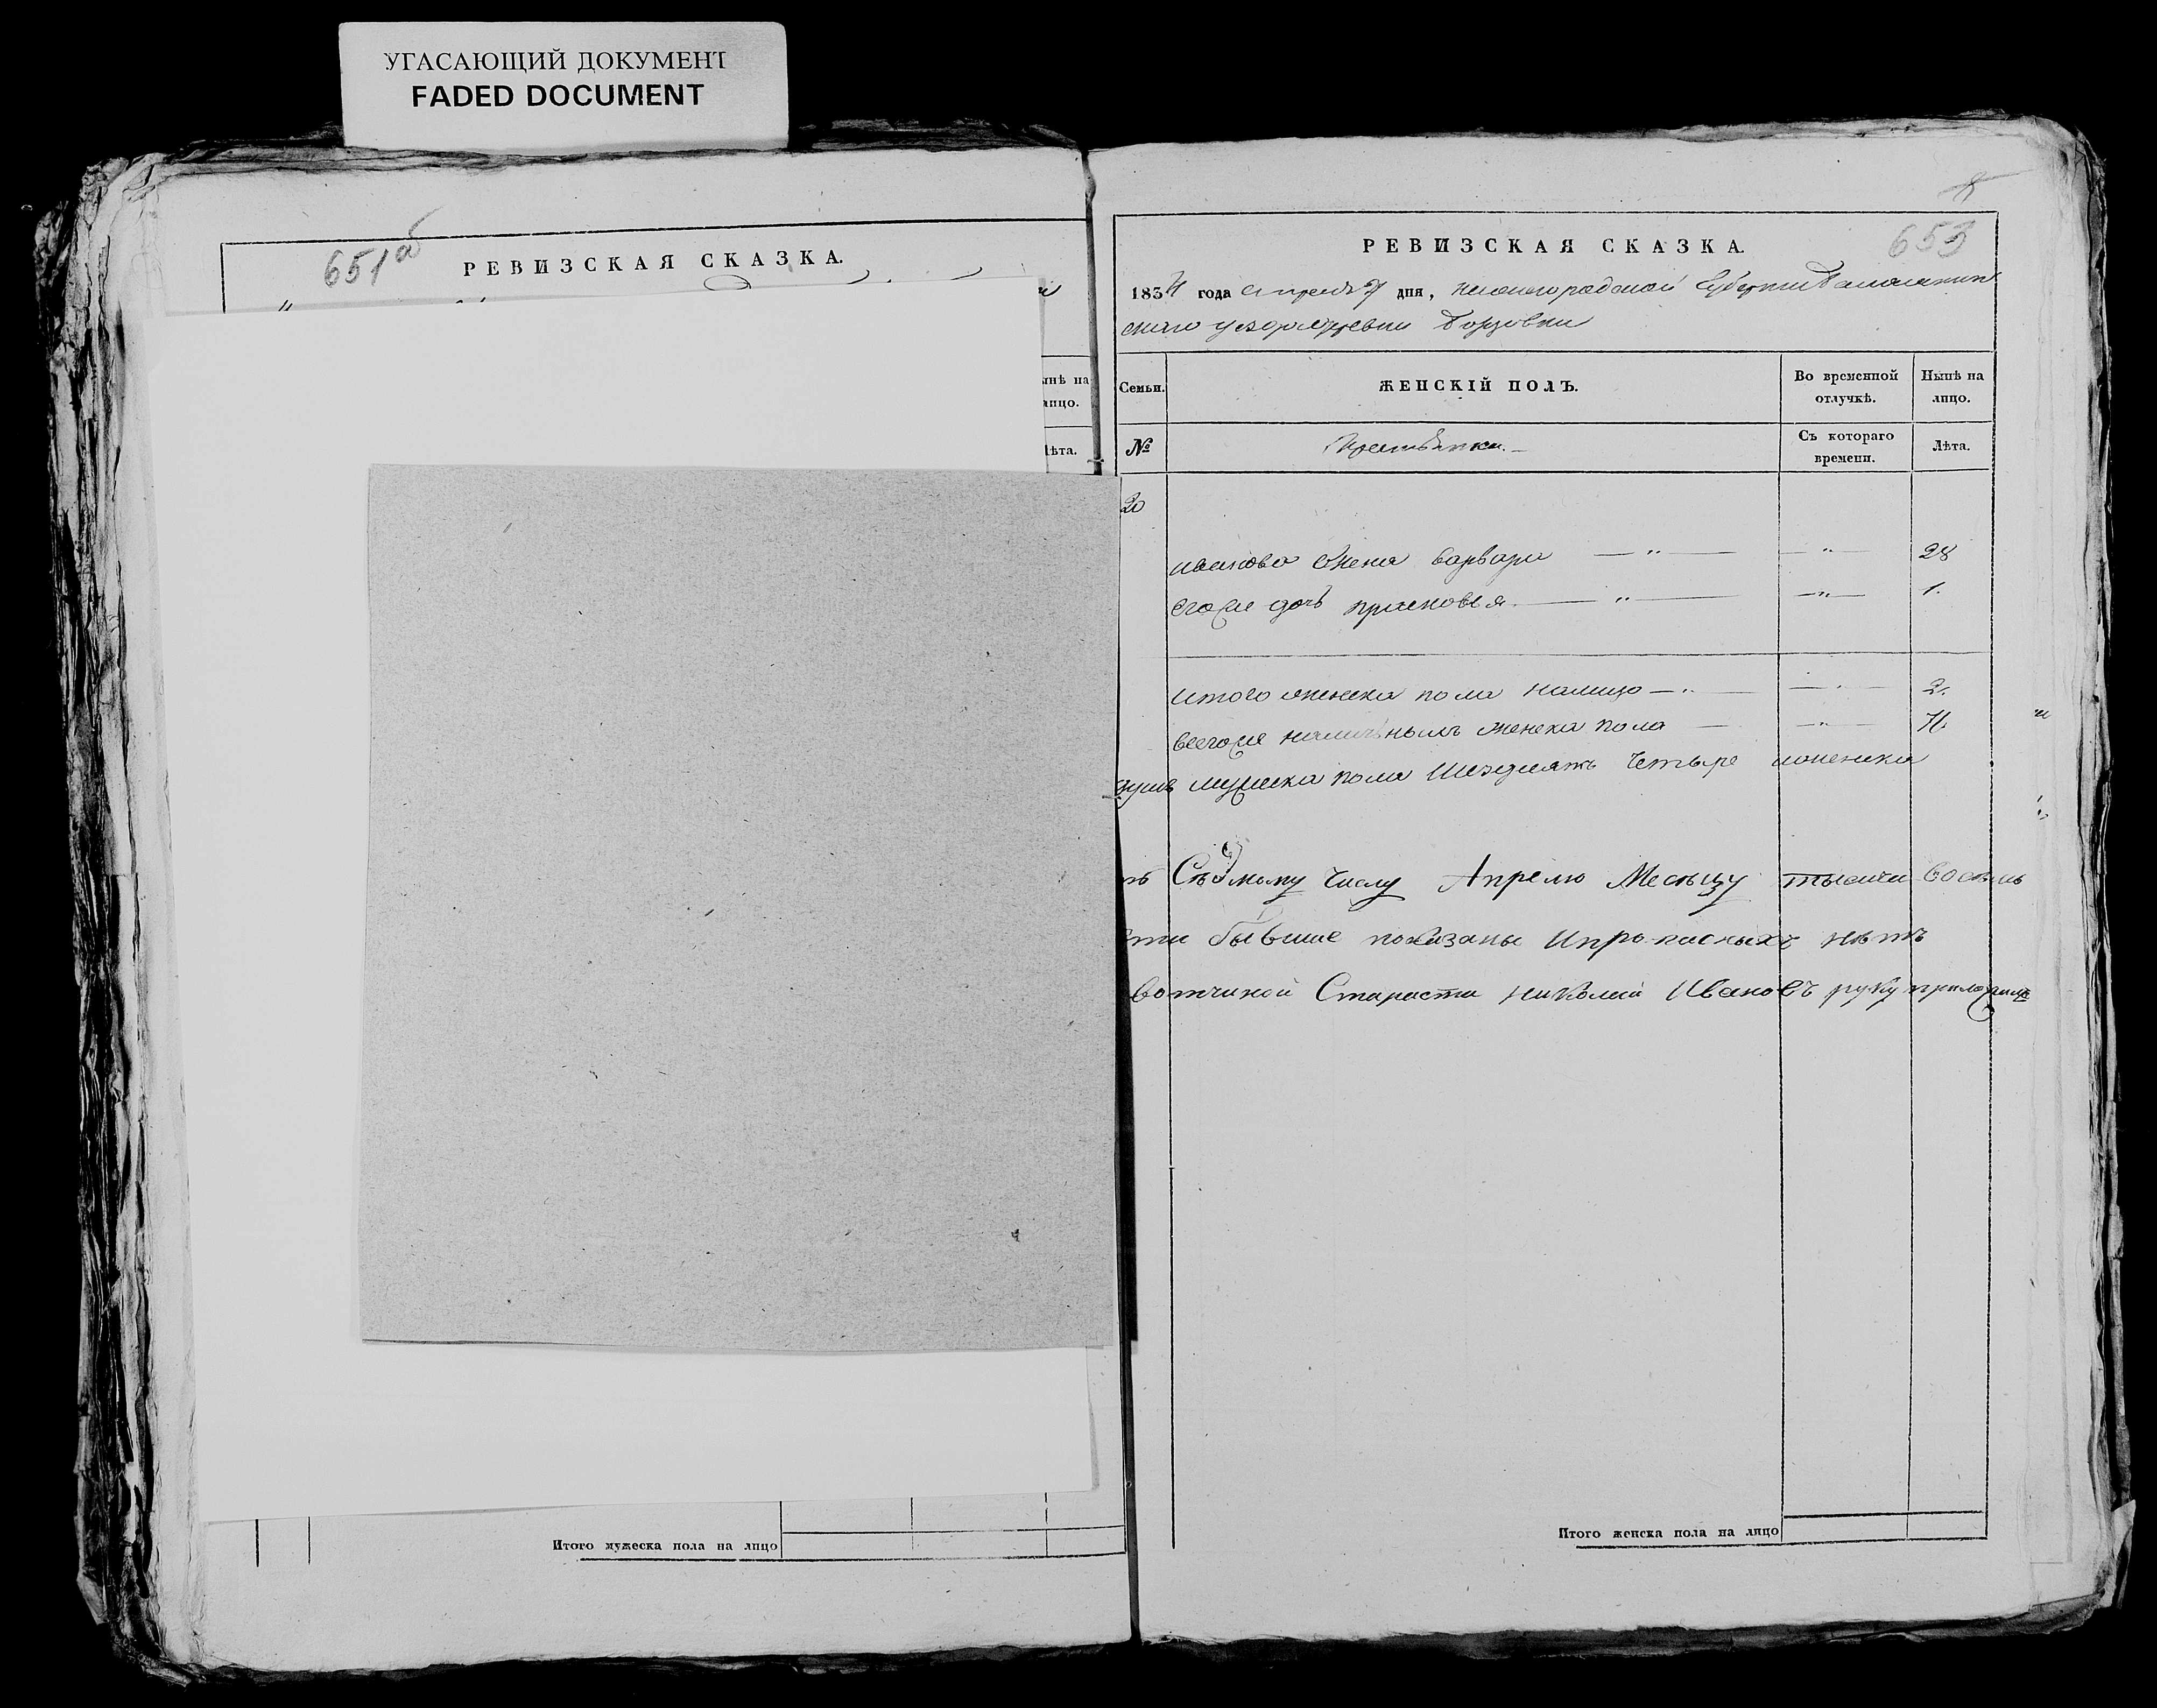 УГАСАЮЩИЙ ДОКУМЕНТ
FADED DOCUMENT
651об
РЕВИЗСКАЯ СКАЗКА.
нѣ на
лицо.
Лѣта.
Итого мужеска пола на лицо
653
РЕВИЗСКАЯ СКАЗКА.
1834 года апреля 7 дня, нижегородской Губернии Балахнин
скаго уезда деревни
Семьи.
ЖЕНСКІЙ ПОЛЪ.
Во временной отлучкѣ.
Нынѣ на лицо.
№
Крестьянки.
Съ котораго времени.
Лѣта.
20
жена варвара — " — — " — 28
егоже дочь прасковья — " — — " — 1.
итого женска пола налицо — " — 2.
всегоже наличныхъ женска пола — — " —
душъ мужеска пола шездеятъ четыре иженска
Сѣдмому числу Апрелю Месяцу тысяча восемь
бывшие показаны ипрописныхъ нѣтъ
вотчиной Староста николай Ивановъ руку приложилъ
Итого женска пола на лицо